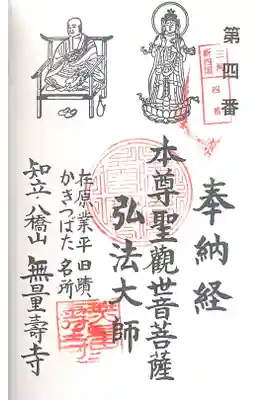 第四番
三河
新四国
四番
奉納経
本尊聖觀世音菩薩
弘法大師
在原業平旧蹟、
かきつばた名所
知立・八橋山 無量壽寺